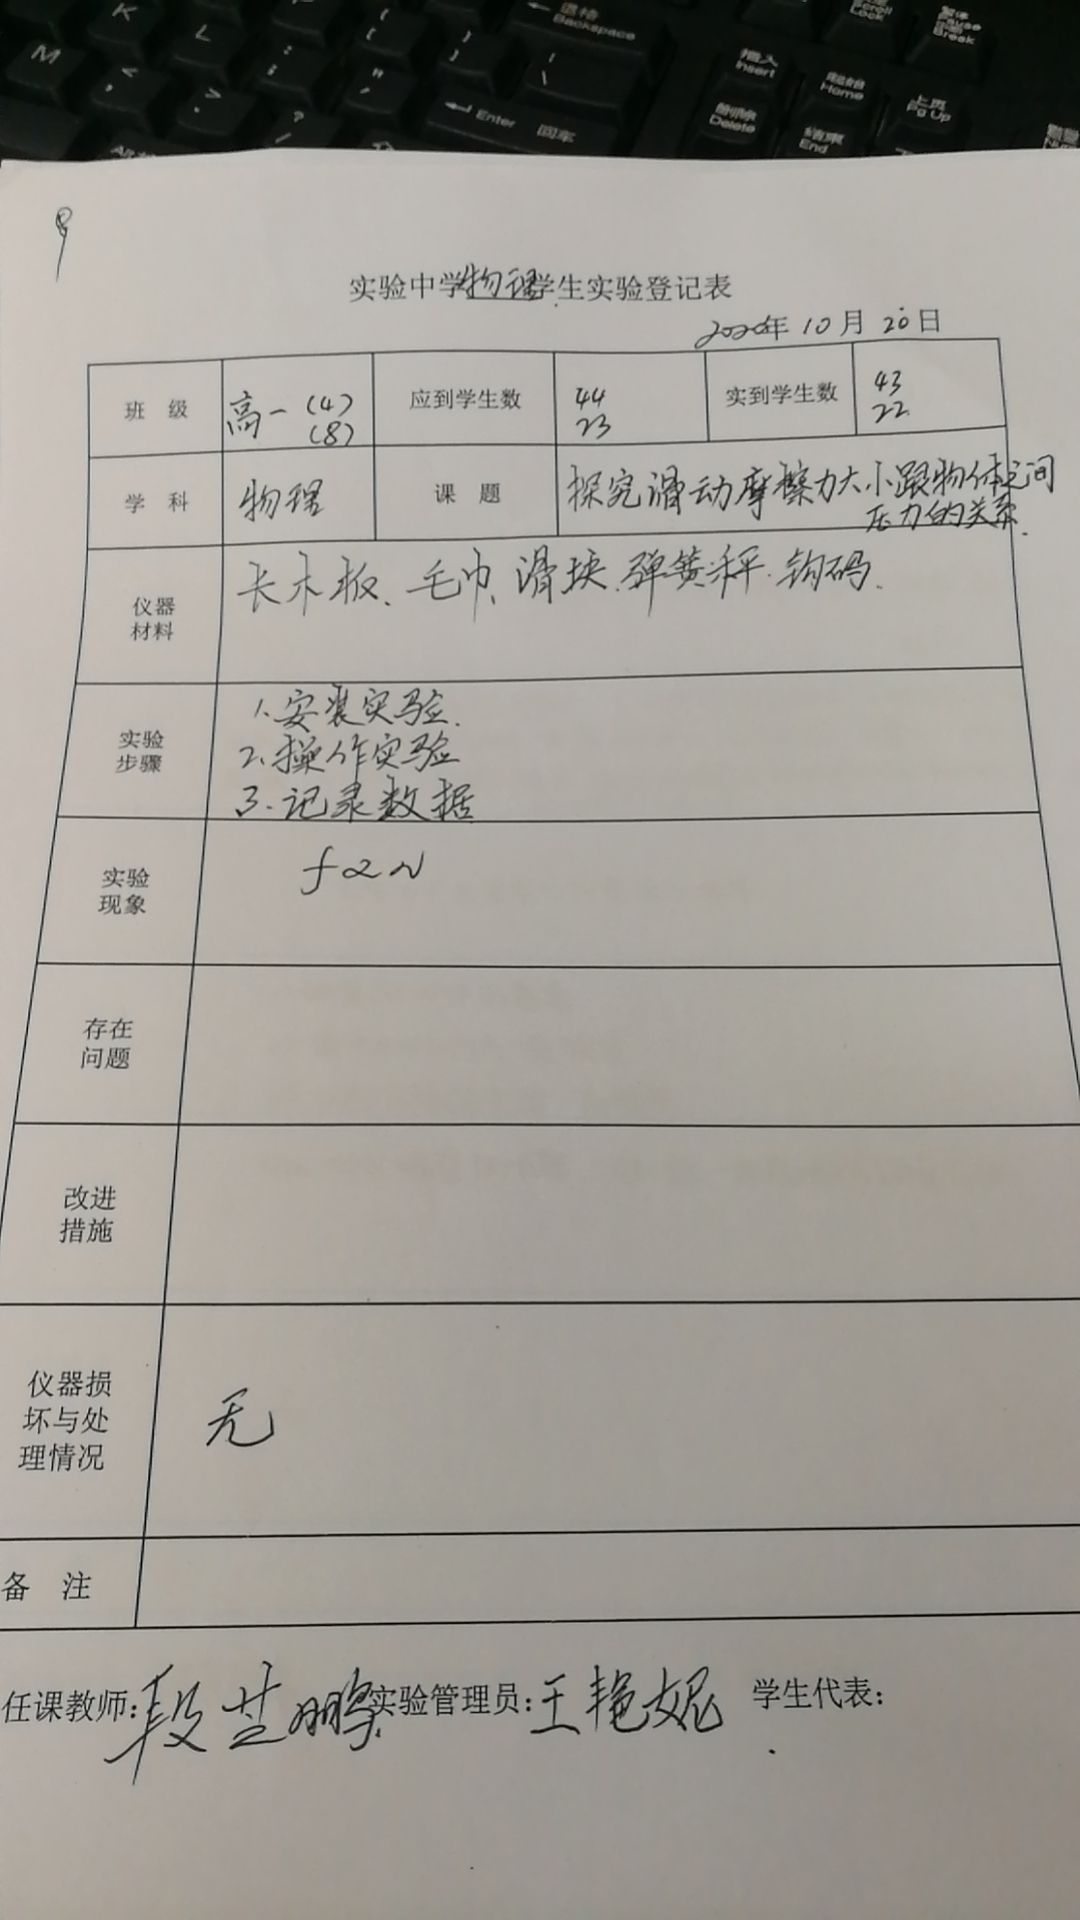 K
L
M
退格
Backspace
Enter 回车
插入
Insert
起始
Home
上页
Pg Up
删除
Delete
结束
End
Scroll
Lock
Break
实验中学物理学生实验登记表
2020年 10月 20日
班 级 高一 (4) (8) 应到学生数 44 23 实到学生数 43 22
学 科 物理 课 题 探究滑动摩擦力大小跟物体之间
压力的关系.
仪器
材料
长木板、毛巾、滑块、弹簧秤、钩码.
实验
步骤
1.安装实验.
2.操作实验
3.记录数据
实验
现象
f∝N
存在
问题
改进
措施
仪器损
坏与处
理情况
无
备 注
任课教师:段 鹏 实验管理员:王艳妮 学生代表: